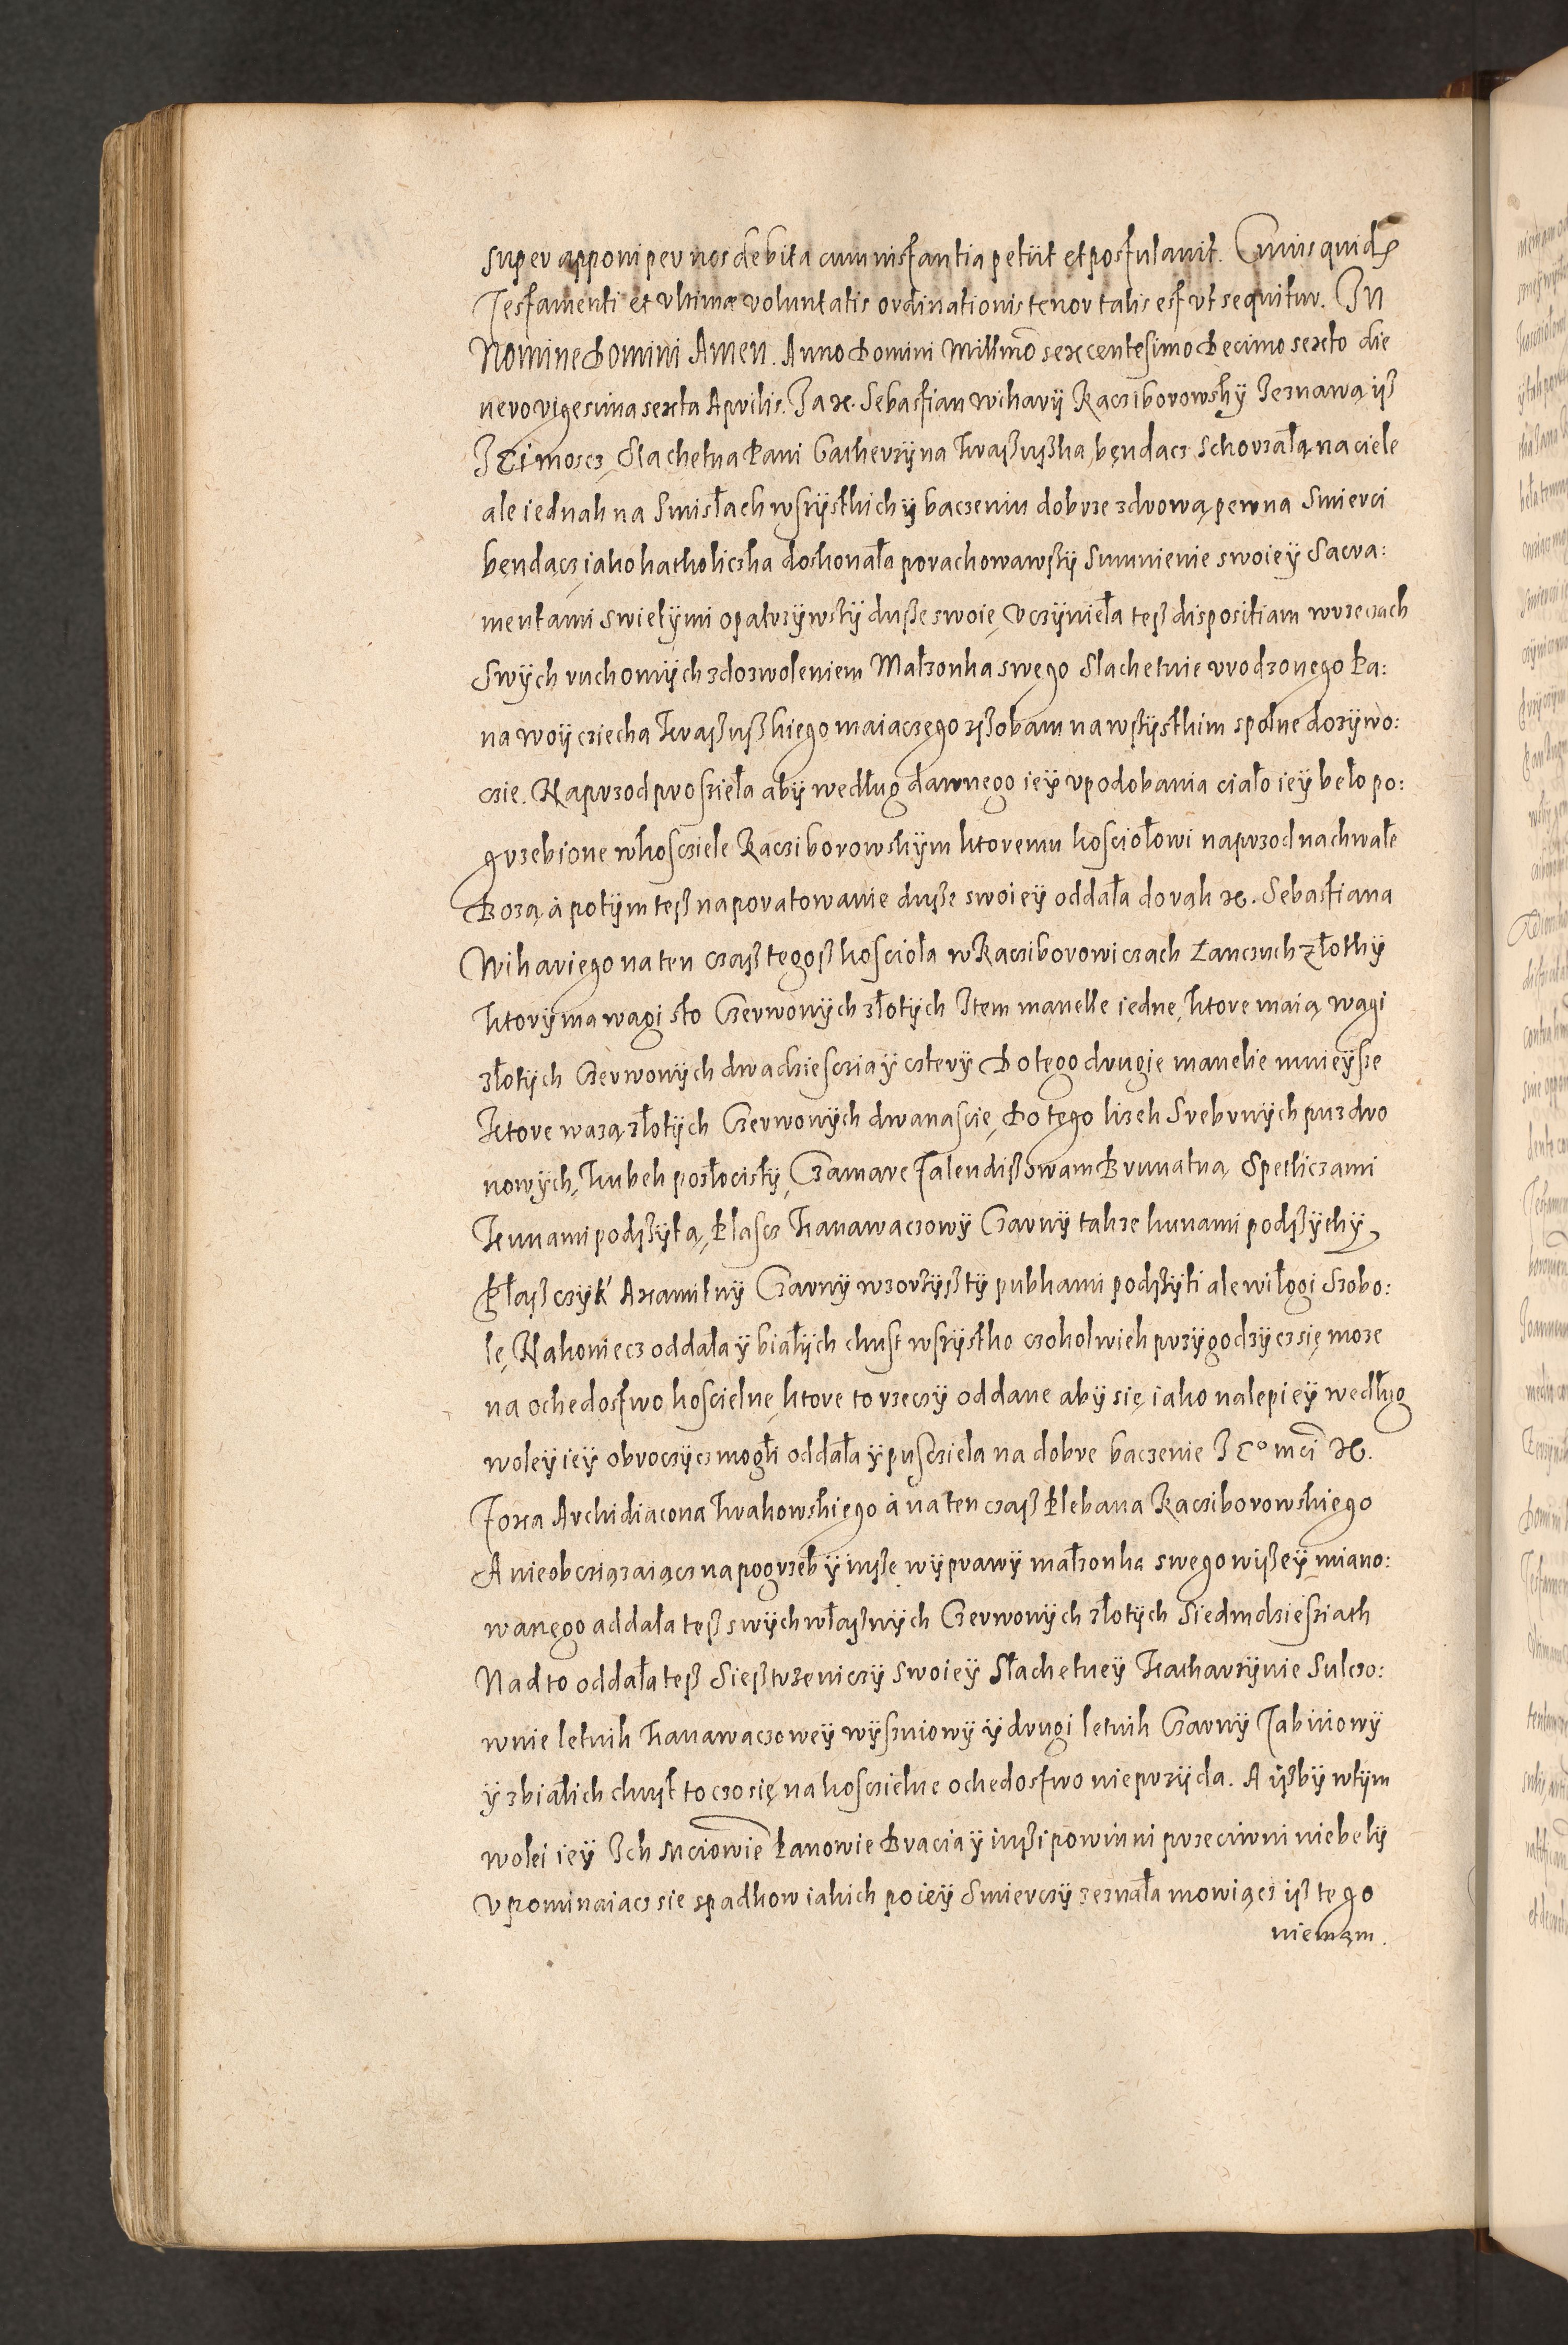 super apponi per nos debita cum instantia petiit et postulauit. Cuius quidē
Testamenti et vltimæ voluntatis ordinationis tenor talis est vt sequitur. In
Nomine Domini Amen. Anno Domini Millmō sexcentesimo Decimo sexto die
uero vigesima sexta Aprilis. Ja X. Sebastian wikary Raciborowsky Zeznawą yß
JEi moscz, Slachetna Pani Catherzyna Kraßußka, będacz schorzałą na ciele
ale iednak na Smisłach wszÿstkich ÿ baczeniu dobrze zdrową, pewna Smierci
bendącz iako katholiczka doskonała porachowawszÿ Sumnienie swoieÿ Sacra:
mentami swietÿmi opatrzÿwszÿ duße swoię, vczÿnieła teß dispositiam w rzeczach
Swÿch ruchomÿch z dozwoleniem Małzonka swego Slachetnie vrodzonego Pa:
na woÿcziecha Kraßußkiego maiaczego zßobam na wßÿstkim społne dozÿwo:
czie. Naprzod prosziela abÿ według dawnego ieÿ vpodobania ciało ieÿ beło po:
grzebione w kosciele Raciborowskÿm ktoremu kosciołowi naprzod na chwałe
Bozą, à potÿm teß na poratowanie duße swoieÿ oddała do rąk X. Sebastiana
Wikariego na ten czaß tegoß kosciola w Raciborowiczach Łanczuch złotkÿ
ktorÿ ma wagi sto Czerwonÿch złotÿch Item manelle iedne, ktore maią wagi
złotÿch Czerwonÿch dwadziesczia ÿ czterÿ Do tego drugie manelie mnieÿsze
Ktore wazą złotÿch Czerwonÿch dwanascie, Do tego lizek Srebrnÿch puzdro
nowÿch, Kubek pozłocistÿ, Czamare Falendißowam Brunatną Spetliczami
Kunami podßÿtą, Płascz Kanawaczowÿ Czarnÿ takze kunami podßÿtÿ,
Płaßczÿk Axamitnÿ Czarnÿ wzorzÿßtÿ pubkami podßÿti ale wiłogi Szobo:
lę, Nakoniecz oddała ÿ białÿch chust wszÿstko czokolwiek przÿgodzÿcz się moze
na ochedostwo koscielnę, ktore to rzeczÿ oddane abÿ się iako nalepieÿ według
woleÿ ieÿ obroczÿcz mogłi oddała ÿ pusciela na dobre baczenie JE° mci X.
Foxa Archidiacona Krakowskiego à na ten czaß Plebana Raciborowskiego
A nie obcziązaiącz na pogrzeb ÿ inße wÿprawÿ małzonka swego wißeÿ miano:
wanego addała teß swÿch własnÿch Czerwonÿch złotÿch siedmdziesiath
Nad to oddała teß Sießtrzeniczÿ swoieÿ Słachetneÿ Katharzÿnie Sulczo:
wnie letnik Kanawaczoweÿ wÿszniowÿ ÿ drugi letnik Czarnÿ Tabinowÿ
ÿ z białich chust to czo się na koscielne ochedostwo nie przÿda. A ÿßbÿ w tÿm
wolei ieÿ Ich Mciowie Panowie Bracia ÿ inßi powinni przeciwni niebelÿ
vpominaiacz sie spadkow iakich po ieÿ Smierczÿ zeznała mowiącz iß tego
niemam.